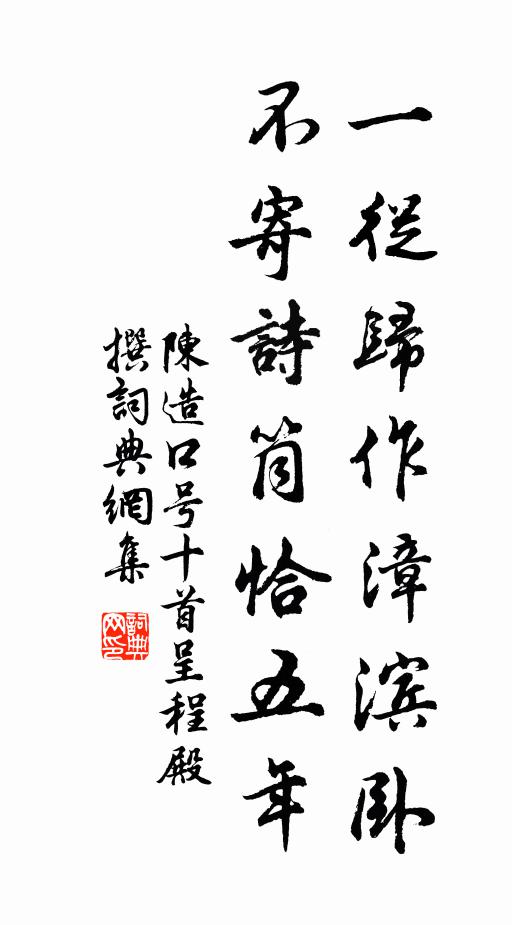 一從歸作漳滨卧
不寄詩筒恰五年
陳造口号十首呈程殿
撰詞典網集
詞典网印